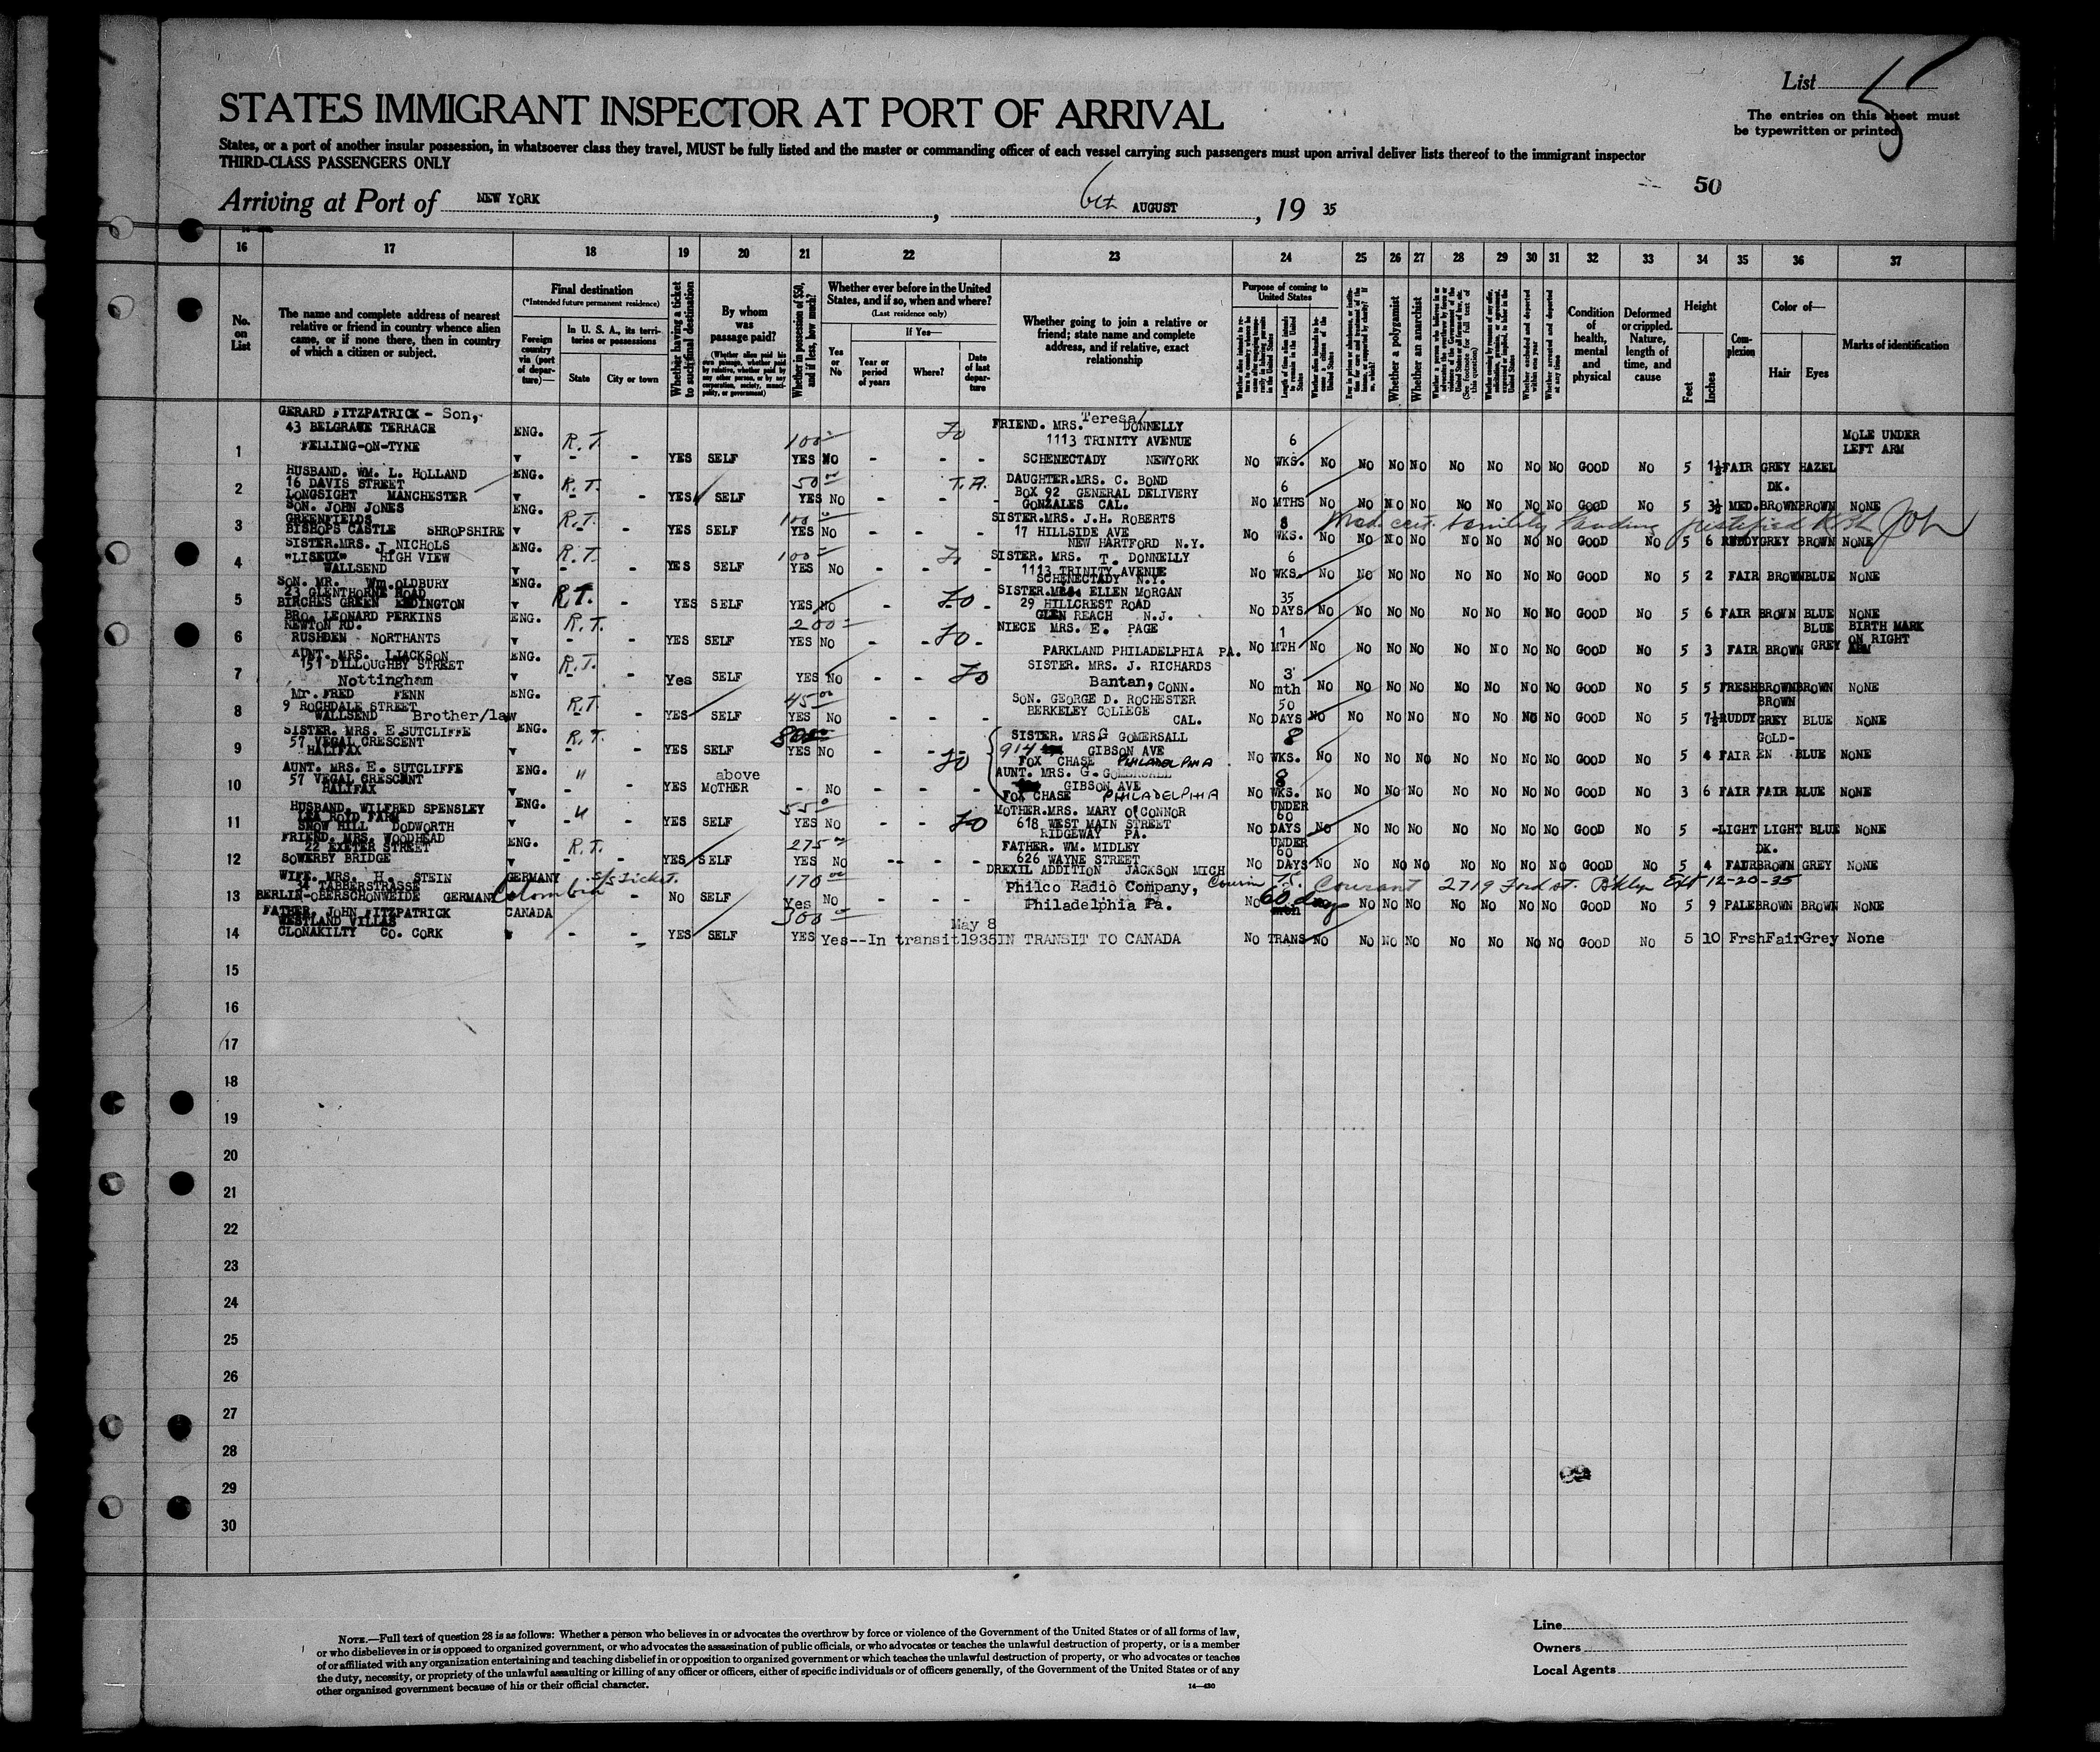 List 5
The entries on this sheet must
be typewritten or printed
STATES IMMIGRANT INSPECTOR AT PORT OF ARRIVAL
States, or a port of another insular possession, in whatsoever class they travel, MUST be fully listed and the master or commanding officer of each vessel carrying such passengers must upon arrival deliver lists thereof to the immigrant inspector
THIRD-CLASS PASSENGERS ONLY
50
Arriving at Port of NEW YORK, 6th AUGUST, 19 35
16 17 18 19 20 21 22 23 24 25 26 27 28 29 30 31 32 33 34 35 36 37
No. on List
The name and complete address of nearest relative or friend in country whence alien came, or if none there, then in country of which a citizen or subject.
Final destination
(*Intended future permanent residence)
Foreign country via (port of departure)—
In U. S. A., its territories or possessions
State City or town
Whether having a ticket to such final destination
By whom was passage paid?
(Whether alien paid his own passage, whether paid by relative, whether paid by any other person, or by any corporation, society, municipality, or government)
Whether in possession of $50, and if less, how much?
Whether ever before in the United States, and if so, when and where?
(Last residence only)
Yes or No
If Yes—
Year or period of years
Where?
Date of last departure
Whether going to join a relative or friend; state name and complete address, and if relative, exact relationship
Purpose of coming to United States
Length of time alien intends to remain in the United States
Whether alien intends to become a citizen of the United States
Whether a polygamist
Whether an anarchist
(See footnote for full text of this question)
Whether arrested and deported at any time
Condition of health, mental and physical
Deformed or crippled. Nature, length of time, and cause
Height
Feet Inches
Complexion
Color of—
Hair Eyes
Marks of identification
1 GERARD FITZPATRICK - Son, 43 BELGRAVE TERRACE FELLING-ON-TYNE ENG. R.T. YES SELF 100 YES NO - - - FRIEND. MRS. Teresa DONNELLY 1113 TRINITY AVENUE SCHENECTADY NEWYORK NO 6 WKS. NO NO NO NO NO NO NO NO GOOD NO 5 1½ FAIR GREY HAZEL MOLE UNDER LEFT ARM
2 HUSBAND. WM. L. HOLLAND 16 DAVIS STREET LONGSIGHT MANCHESTER ENG. R.T. - - YES SELF 50 YES NO - - - DAUGHTER.MRS. C. BOND BOX 92 GENERAL DELIVERY GONZALES CAL. NO 6 MTHS NO NO NO NO NO NO NO NO GOOD NO 5 3½ MED. DK. BROWN BROWN NONE
3 SON. JOHN JONES GREENFIELDS BISHOPS CASTLE SHROPSHIRE ENG. R.T. - - YES SELF 100 YES NO - - - SISTER.MRS. J.H. ROBERTS 17 HILLSIDE AVE NEW HARTFORD N.Y. NO 8 WKS. NO NO NO NO NO NO NO NO GOOD NO 5 6 RUDDY GREY BROWN NONE
Med. cert. senility landing justified
4 SISTER.MRS. J. NICHOLS "LISEUX" HIGH VIEW WALLSEND ENG. R.T. - - YES SELF 100 YES NO - - - SISTER. MRS. T. DONNELLY 1113 TRINITY AVENUE SCHENECTADY N.Y. NO 6 WKS. NO NO NO NO NO NO NO NO GOOD NO 5 2 FAIR BROWN BLUE NONE
5 SON. MR. WM. OLDBURY 23 GLENTHORNE ROAD BIRCHES GREEN ERDINGTON ENG. R.T. - YES SELF YES NO - - - SISTER.MRS. ELLEN MORGAN 29 HILLCREST ROAD GLEN REACH N.J. NO 35 DAYS NO NO NO NO NO NO NO NO GOOD NO 5 6 FAIR BROWN BLUE NONE
6 BRO. LEONARD PERKINS NEWTON RD. RUSHDEN NORTHANTS ENG. R.T. - - YES SELF 200 YES NO - - - NIECE MRS. E. PAGE PARKLAND PHILADELPHIA PA. NO 1 MTH NO NO NO NO NO NO NO NO GOOD NO 5 3 FAIR BROWN BLUE GREY BIRTH MARK ON RIGHT ARM
7 AUNT. MRS. L JACKSON 151 DILLOUGHBY STREET Nottingham ENG. R.T. - - Yes SELF YES NO - - SISTER. MRS. J. RICHARDS Bantan, CONN. NO 3 mth NO NO NO NO NO NO NO NO GOOD NO 5 5 FRESH BROWN BROWN NONE
8 Mr. FRED FENN 9 ROCHDALE STREET WALLSEND Brother/law ENG. R.T. - - YES SELF 45 YES NO - - - SON. GEORGE D. ROCHESTER BERKELEY COLLEGE CAL. NO 50 DAYS NO NO NO NO NO NO NO NO GOOD NO 5 7½ RUDDY BROWN GREY BLUE NONE
9 SISTER. MRS. E SUTCLIFFE 57 VEGAL CRESCENT HALIFAX ENG. R.T. - - YES SELF YES NO - - - SISTER. MRS G GOMERSALL 914 GIBSON AVE FOX CHASE PHILADELPHIA NO 8 WKS. NO NO NO NO NO NO NO NO GOOD NO 5 4 FAIR GOLD-EN BLUE NONE
10 AUNT. MRS. E. SUTCLIFFE 57 VEGAL CRESCENT HALIFAX ENG. " - - YES above MOTHER - NO - - - AUNT. MRS. G. GOMERSALL GIBSON AVE FOX CHASE PHILADELPHIA NO 8 WKS. NO NO NO NO NO NO NO NO GOOD NO 3 6 FAIR FAIR BLUE NONE
11 HUSBAND. WILFRED SPENSLEY LEA ROYD FARM SNOW HILL DODWORTH ENG. " - - YES SELF 55 YES NO - - MOTHER.MRS. MARY O'CONNOR 618 WEST MAIN STREET RIDGEWAY PA. NO UNDER 60 DAYS NO NO NO NO NO NO NO NO GOOD NO 5 - LIGHT LIGHT BLUE NONE
12 FRIEND. MRS. WOODHEAD 22 EXETER STREET SOWERBY BRIDGE ENG. R.T. - - YES SELF 275 YES NO -- - - FATHER. WM. MIDLEY 626 WAYNE STREET DREXIL ADDITION JACKSON MICH NO UNDER 60 DAYS NO NO NO NO NO NO NO NO GOOD NO 5 4 FAIR DK. BROWN GREY NONE
13 WIFE. MRS. H. STEIN 34 TABBERSTRASSE BERLIN-OBERSCHONWEIDE GERMANY GERMANY Colombia S/S Ticket. NO SELF 170 Yes NO - - - Philco Radio Company, Philadelphia Pa. NO 60 days NO NO NO NO NO NO NO GOOD NO 5 9 PALE BROWN BROWN NONE
Cousin Courant 2719 3rd st. Bklyn Ext 12-20-35
14 FATHER. JOHN FITZPATRICK WESTLAND VILLAS CLONAKILTY CO. CORK CANADA - - YES SELF 300 YES Yes--In transit May 8 1935 IN TRANSIT TO CANADA NO TRANS NO NO NO NO NO NO NO NO GOOD NO 5 10 Frsh Fair Grey None
15
16
17
18
19
20
21
22
23
24
25
26
27
28
29
30
NOTE.—Full text of question 28 is as follows: Whether a person who believes in or advocates the overthrow by force or violence of the Government of the United States or of all forms of law,
or who disbelieves in or is opposed to organized government, or who advocates the assassination of public officials, or who advocates or teaches the unlawful destruction of property, or is a member
of or affiliated with any organization entertaining and teaching disbelief in or opposition to organized government or which teaches the unlawful destruction of property, or who advocates or teaches
the duty, necessity, or propriety of the unlawful assaulting or killing of any officer or officers, either of specific individuals or of officers generally, of the Government of the United States or of any
other organized government because of his or their official character.
14—430
Line
Owners
Local Agents